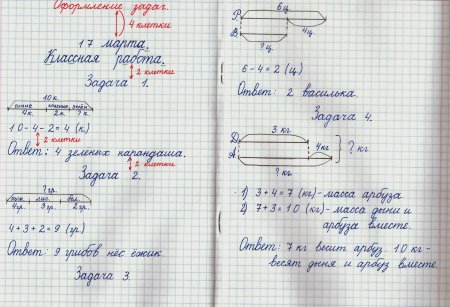 Оформление задач.
4 клетки
17 марта.
Классная работа.
2 клетки
Задача 1.
10 к.
синие красные зелён.
4к. 2к. ? к.
10-4-2=4 (к.)
2 клетки
Ответ: 4 зеленых карандаша.
2 клетки
Задача 2.
? гр.
лис. бел.
4гр. 3гр. 2гр.
4+3+2=9 (гр.)
Ответ: 9 грибов нёс ёжик.
Задача 3.
6ц.
Р.
4ц.
В.
?ц.
6-4=2 (ц.)
Ответ: 2 василька.
Задача 4.
3 кг
Д
4кг
? кг
А
? кг.
1) 3+4=7 (кг)-масса арбуза.
2) 7+3=10 (кг)-масса дыни и
арбуза вместе.
Ответ: 7 кг весит арбуз. 10 кг-
весят дыня и арбуз вместе.